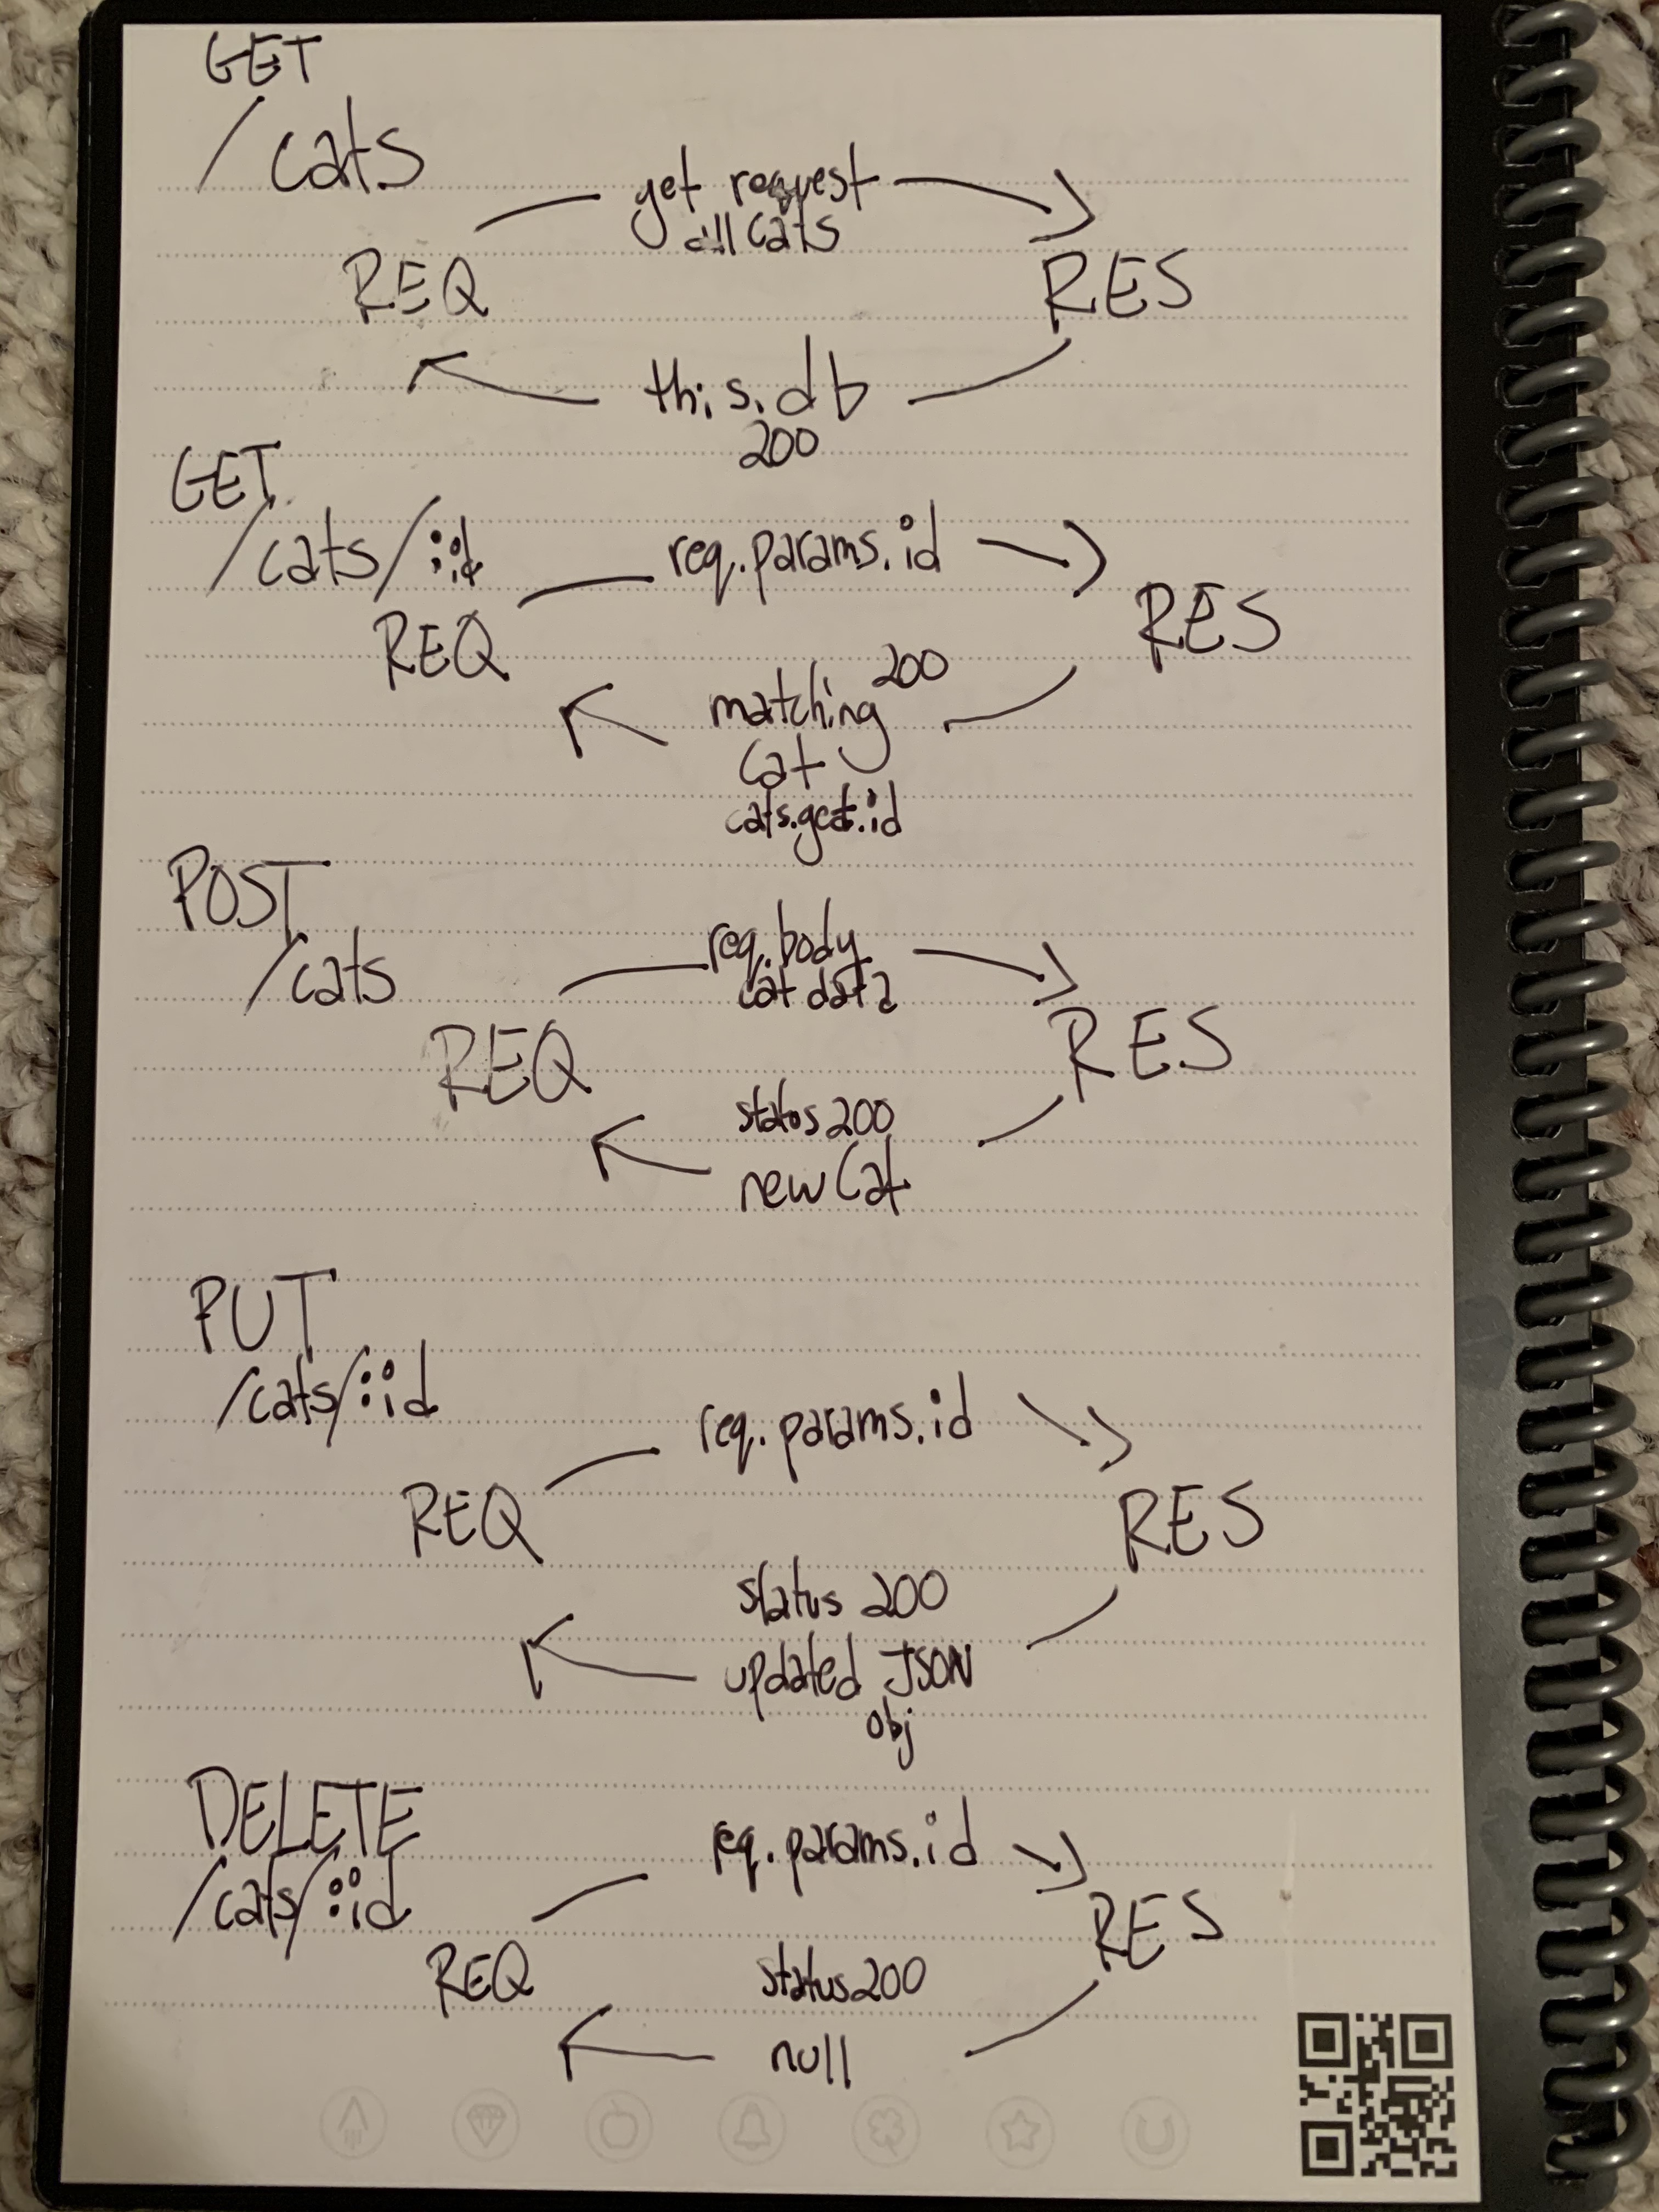 GET
/cats
get request
all cats
REQ
RES
this.db
200
GET
/cats/:id
req.params.id
REQ
RES
200
matching
Cat
POST
/cats
req.body
cat data
REQ
RES
status 200
new Cat
PUT
/cats/:id
req.params.id
REQ
RES
status 200
updated JSON
obj
DELETE
/cats/:id
req.params.id
REQ
RES
status 200
null